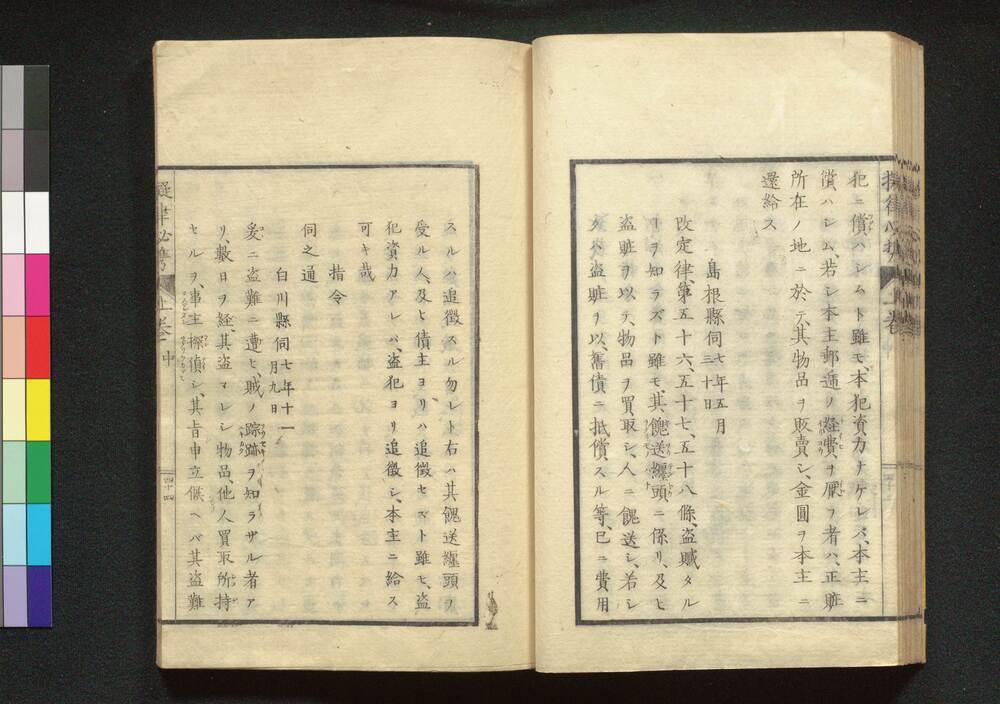 犯ニ償ハシムト雖モ、本犯資力ナケレバ、本主ニ
償ハシム、若シ本主郵逓ノ経費ヲ厭フ者ハ、正贓
所在ノ地ニ於テ、其物品ヲ販賣シ、金圓ヲ本主ニ
還給ス
島根縣伺七年五月三十日
改定律、第五十六、五十七、五十八條、盗贓タル
ヿヲ知ラズト雖モ、其餽送纏頭ニ係リ、及ヒ
盗贓ヲ以テ、物品ヲ買取シ、人ニ餽送シ、若シ
クハ盗贓ヲ以、舊債ニ抵償スル等、已ニ費用
スルハ追徴スル勿レト右ハ其餽送纏頭ヲ
受ル人、及ヒ債主ヨリハ追徴セズト雖モ、盗
犯資力アレバ、盗犯ヨリ追徴シ、本主ニ給ス
可キ哉
指令
伺之通
白川縣伺七年十一月九日
爰ニ盗難ニ遭ヒ、賊ノ踪跡ヲ知ラサル者ア
リ、數日ヲ経、其盗マレシ物品、他人買取所持
セルヲ、事主探偵シ、其旨申立候ヘバ其盗難
擬律必携
上巻中
四十四